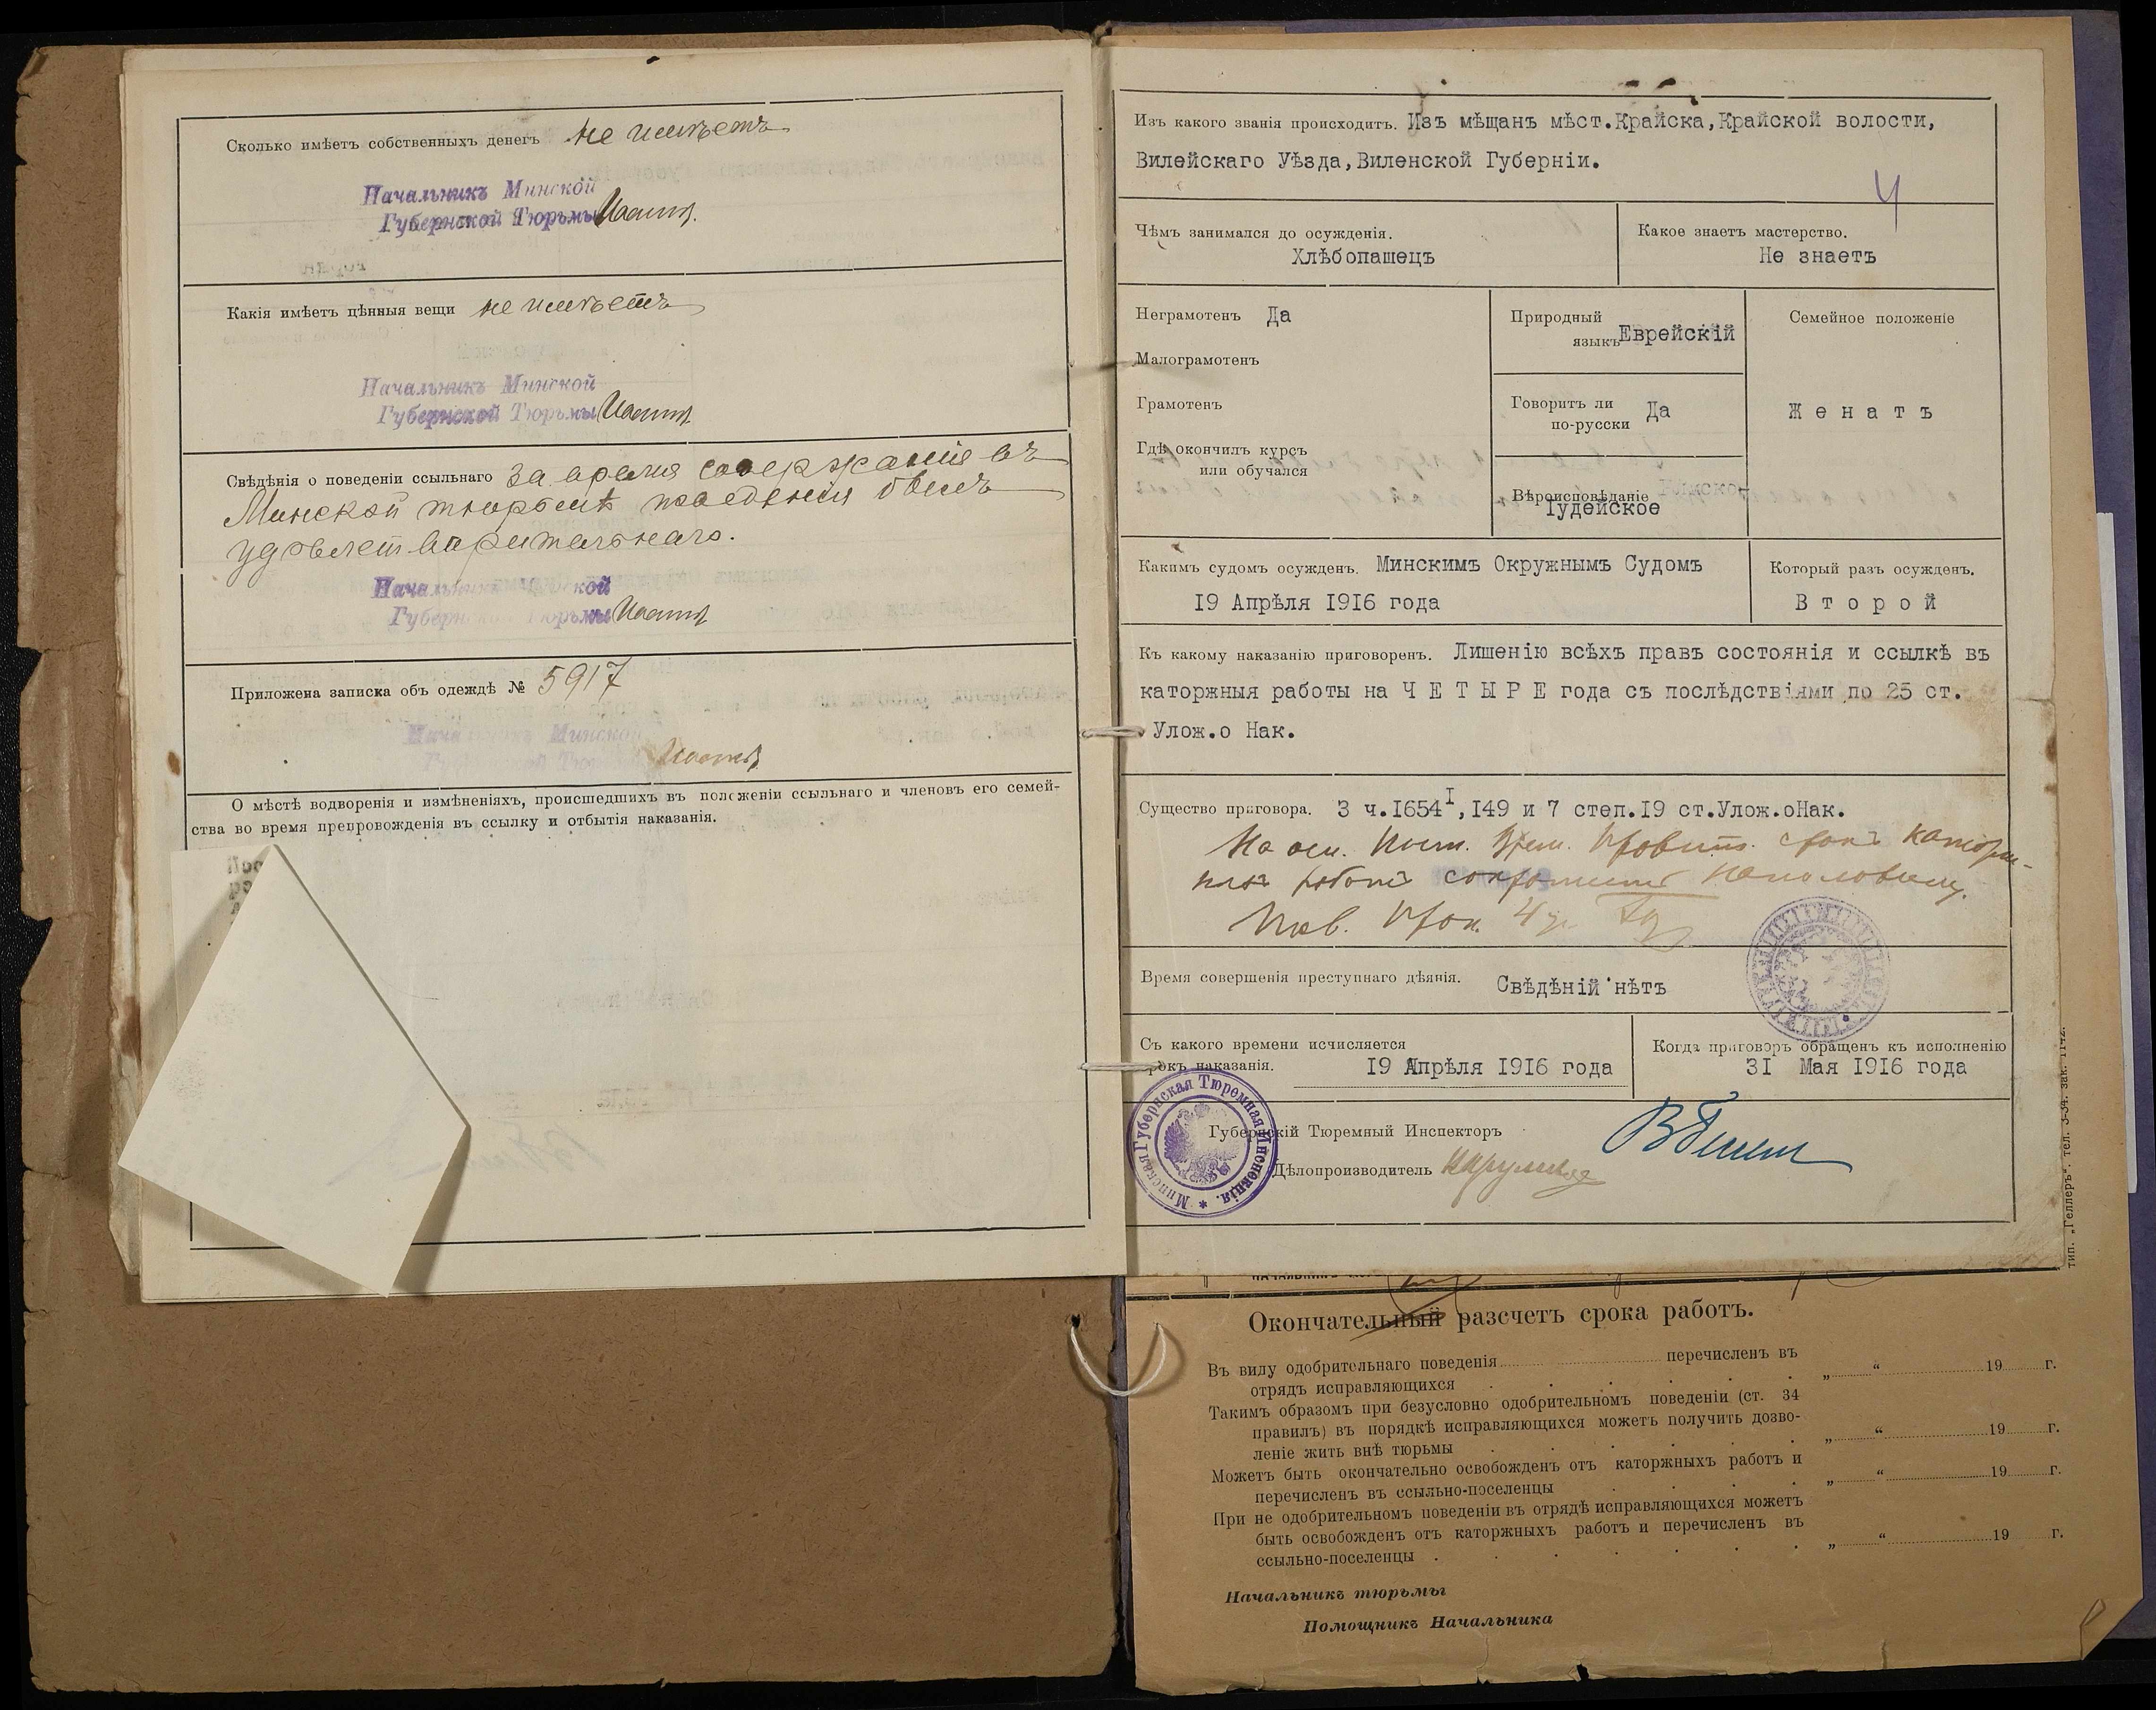 Сколько имѣетъ собственныхъ денегъ не имѣетъ
Начальникъ Минской
Губернской Тюрьмы
Какія имѣетъ цѣнныя вещи не имѣетъ
Начальникъ Минской
Губернской Тюрьмы
Свѣдѣнія о поведеніи ссыльнаго за время содержанія въ
Минской тюрьмѣ поведенія былъ
удовлетворительнаго.
Начальникъ Минской
Губернской Тюрьмы
Приложена записка объ одеждѣ № 5917
Начальникъ Минской
Губернской Тюрьмы
О мѣстѣ водворенія и измѣненіяхъ, происшедшихъ въ положеніи ссыльнаго и членовъ его семей-
ства во время препровожденія въ ссылку и отбытія наказанія.
Изъ какого званія происходитъ. Изъ мѣщанъ мѣст.Крайска,Крайской волости,
Вилейскаго Уѣзда,Виленской Губерніи.
Ч
Чѣмъ занимался до осужденія.
Хлѣбопашецъ
Какое знаетъ мастерство.
Не знаетъ
Неграмотенъ Да
Малограмотенъ
Грамотенъ
Гдѣ окончилъ курсъ
или обучался
Природный
языкъ Еврейскій
Говоритъ ли
по-русски Да
Вѣроисповѣданіе
Іудейское
Семейное положеніе
Ж е н а т ъ
Какимъ судомъ осужденъ. Минскимъ Окружнымъ Судомъ
19 Апрѣля 1916 года
Который разъ осужденъ.
В т о р о й
Къ какому наказанію приговоренъ. Лишенію всѣхъ правъ состоянія и ссылкѣ въ
каторжныя работы на Ч Е Т Ы Р Е года съ послѣдствіями по 25 ст.
Улож.о Нак.
Существо приговора. 3 ч.1654 I,149 и 7 степ.19 ст.Улож.оНак.
На осн. Пост. Врем. Правит. срокъ каторж-
ныхъ работъ сокращенъ наполовину.
Тов. Прок. 4 у.
Время совершенія преступнаго дѣянія. Свѣдѣній нѣтъ
Съ какого времени исчисляется
срокъ наказанія. 19 Апрѣля 1916 года
Когда приговоръ обращенъ къ исполненію
31 Мая 1916 года
Губернскій Тюремный Инспекторъ
Дѣлопроизводитель
Минская Губернская Тюремная Инспекція.
тип. „Геллеръ“. тел. 3-34. зак. 1142.
Окончательный разсчетъ срока работъ.
Въ виду одобрительнаго поведенія перечисленъ въ
отрядъ исправляющихся „ “ 19 г.
Такимъ образомъ при безусловно одобрительномъ поведеніи (ст. 34
правилъ) въ порядкѣ исправляющихся можетъ получить дозво-
леніе жить внѣ тюрьмы „ “ 19 г.
Можетъ быть окончательно освобожденъ отъ каторжныхъ работъ и
перечисленъ въ ссыльно-поселенцы „ “ 19 г.
При не одобрительномъ поведеніи въ отрядѣ исправляющихся можетъ
быть освобожденъ отъ каторжныхъ работъ и перечисленъ въ
ссыльно-поселенцы „ “ 19 г.
Начальникъ тюрьмы
Помощникъ Начальника